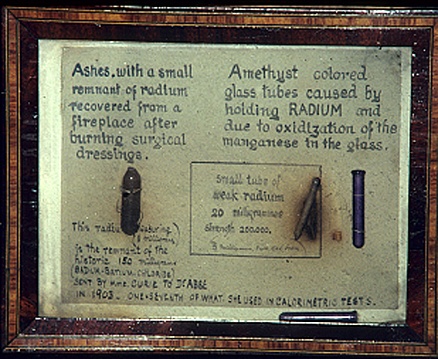 Ashes, with a small
remnant of radium
recovered from a
fireplace after
burning surgical
dressings.
Amethyst colored
glass tubes caused by
holding RADIUM and
due to oxidization of the
manganese in the glass.
small tube of
weak radium
20 milligrammes
strength
This
is the remnant of the
historic 150 milligrams
(RADIUM-BARIUM-CHLORIDE)
SENT BY MME. CURIE TO DR ABBE
IN 1903. ONE-SEVENTH OF WHAT SHE USED IN CALORIMETRIC TESTS.